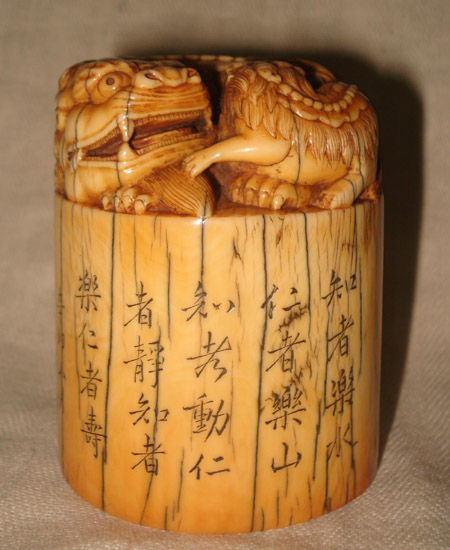 知者樂水
仁者樂山
知者動仁
者靜知者
樂仁者壽